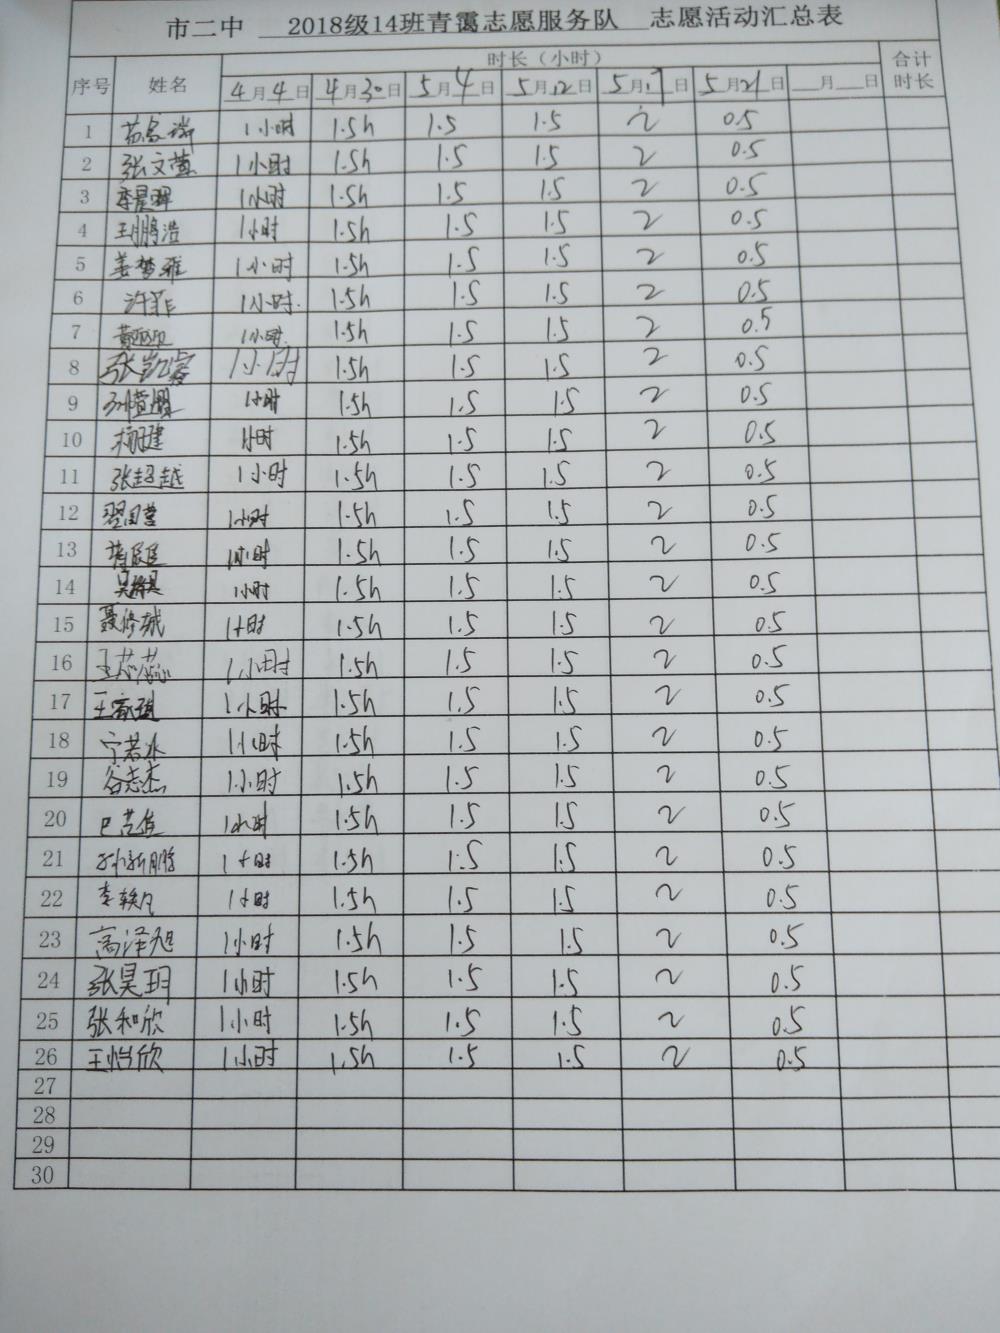 市二中 2018级14班青霭志愿服务队 志愿活动汇总表
序号 姓名 时长（小时） 合计时长
4月4日 4月30日 5月4日 5月12日 5月17日 5月21日 __月__日
1 1小时 1.5h 1.5 1.5 2 0.5
2 张文萱 1小时 1.5h 1.5 1.5 2 0.5
3 李晨晖 1小时 1.5h 1.5 1.5 2 0.5
4 王鹏浩 1小时 1.5h 1.5 1.5 2 0.5
5 姜梦雅 1小时 1.5h 1.5 1.5 2 0.5
6 许菲 1小时 1.5h 1.5 1.5 2 0.5
7 1小时 1.5h 1.5 1.5 2 0.5
8 张凯睿 1小时 1.5h 1.5 1.5 2 0.5
9 1小时 1.5h 1.5 1.5 2 0.5
10 1小时 1.5h 1.5 1.5 2 0.5
11 张超越 1小时 1.5h 1.5 1.5 2 0.5
12 1小时 1.5h 1.5 1.5 2 0.5
13 1小时 1.5h 1.5 1.5 2 0.5
14 1小时 1.5h 1.5 1.5 2 0.5
15 聂修城 1小时 1.5h 1.5 1.5 2 0.5
16 王芯蕊 1小时 1.5h 1.5 1.5 2 0.5
17 王家琪 1小时 1.5h 1.5 1.5 2 0.5
18 宁若冰 1小时 1.5h 1.5 1.5 2 0.5
19 谷志杰 1小时 1.5h 1.5 1.5 2 0.5
20 1小时 1.5h 1.5 1.5 2 0.5
21 孙新鹏 1小时 1.5h 1.5 1.5 2 0.5
22 李轶凡 1小时 1.5h 1.5 1.5 2 0.5
23 高泽旭 1小时 1.5h 1.5 1.5 2 0.5
24 张昊玥 1小时 1.5h 1.5 1.5 2 0.5
25 张和欣 1小时 1.5h 1.5 1.5 2 0.5
26 王怡欣 1小时 1.5h 1.5 1.5 2 0.5
27
28
29
30